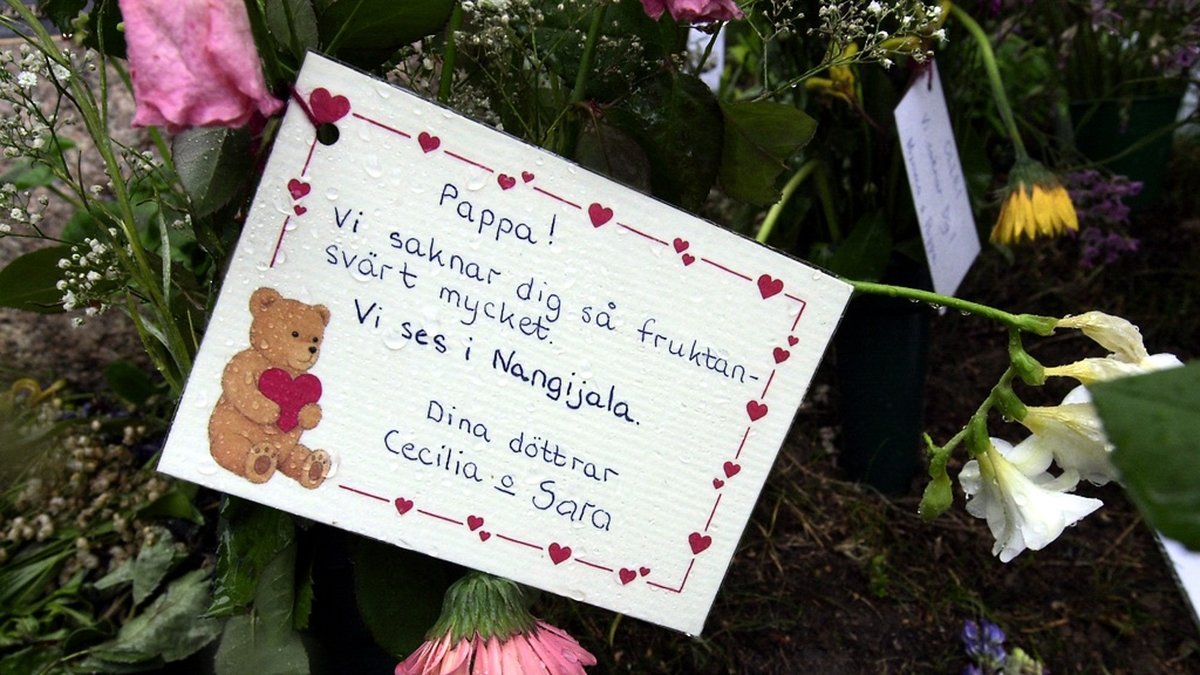 Pappa!
Vi saknar dig så fruktan-
svärt mycket.
Vi ses i Nangijala.
Dina döttrar
Cecilia o Sara